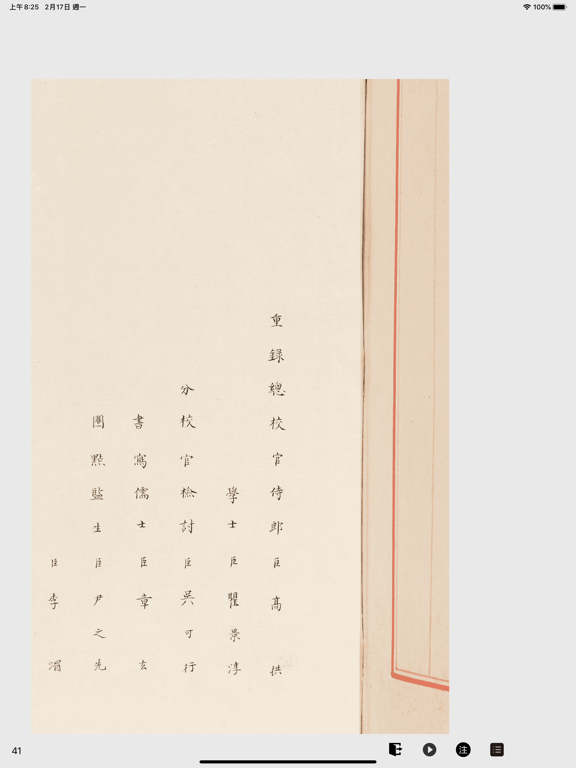 上午8:25 2月17日 週一
100%
重錄總校官侍郎臣高拱
學士臣瞿景淳
分校官檢討臣吳可行
書寫儒士臣章玄
圈點監生臣尹之先
臣李湄
41
注